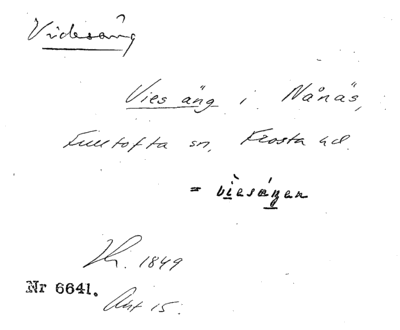 Videsäng
Vies äng i Nånäs,
Fulltofta sn, Frosta hd.
= viesängen
1849
Nr 6641.
15.